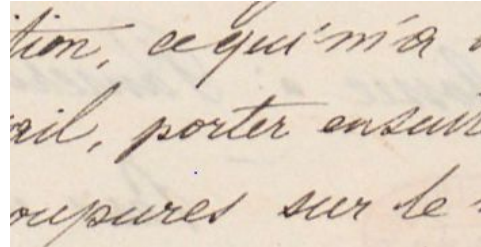 tion, ce qui m'a
ail, porter ensuit
oupures sur le